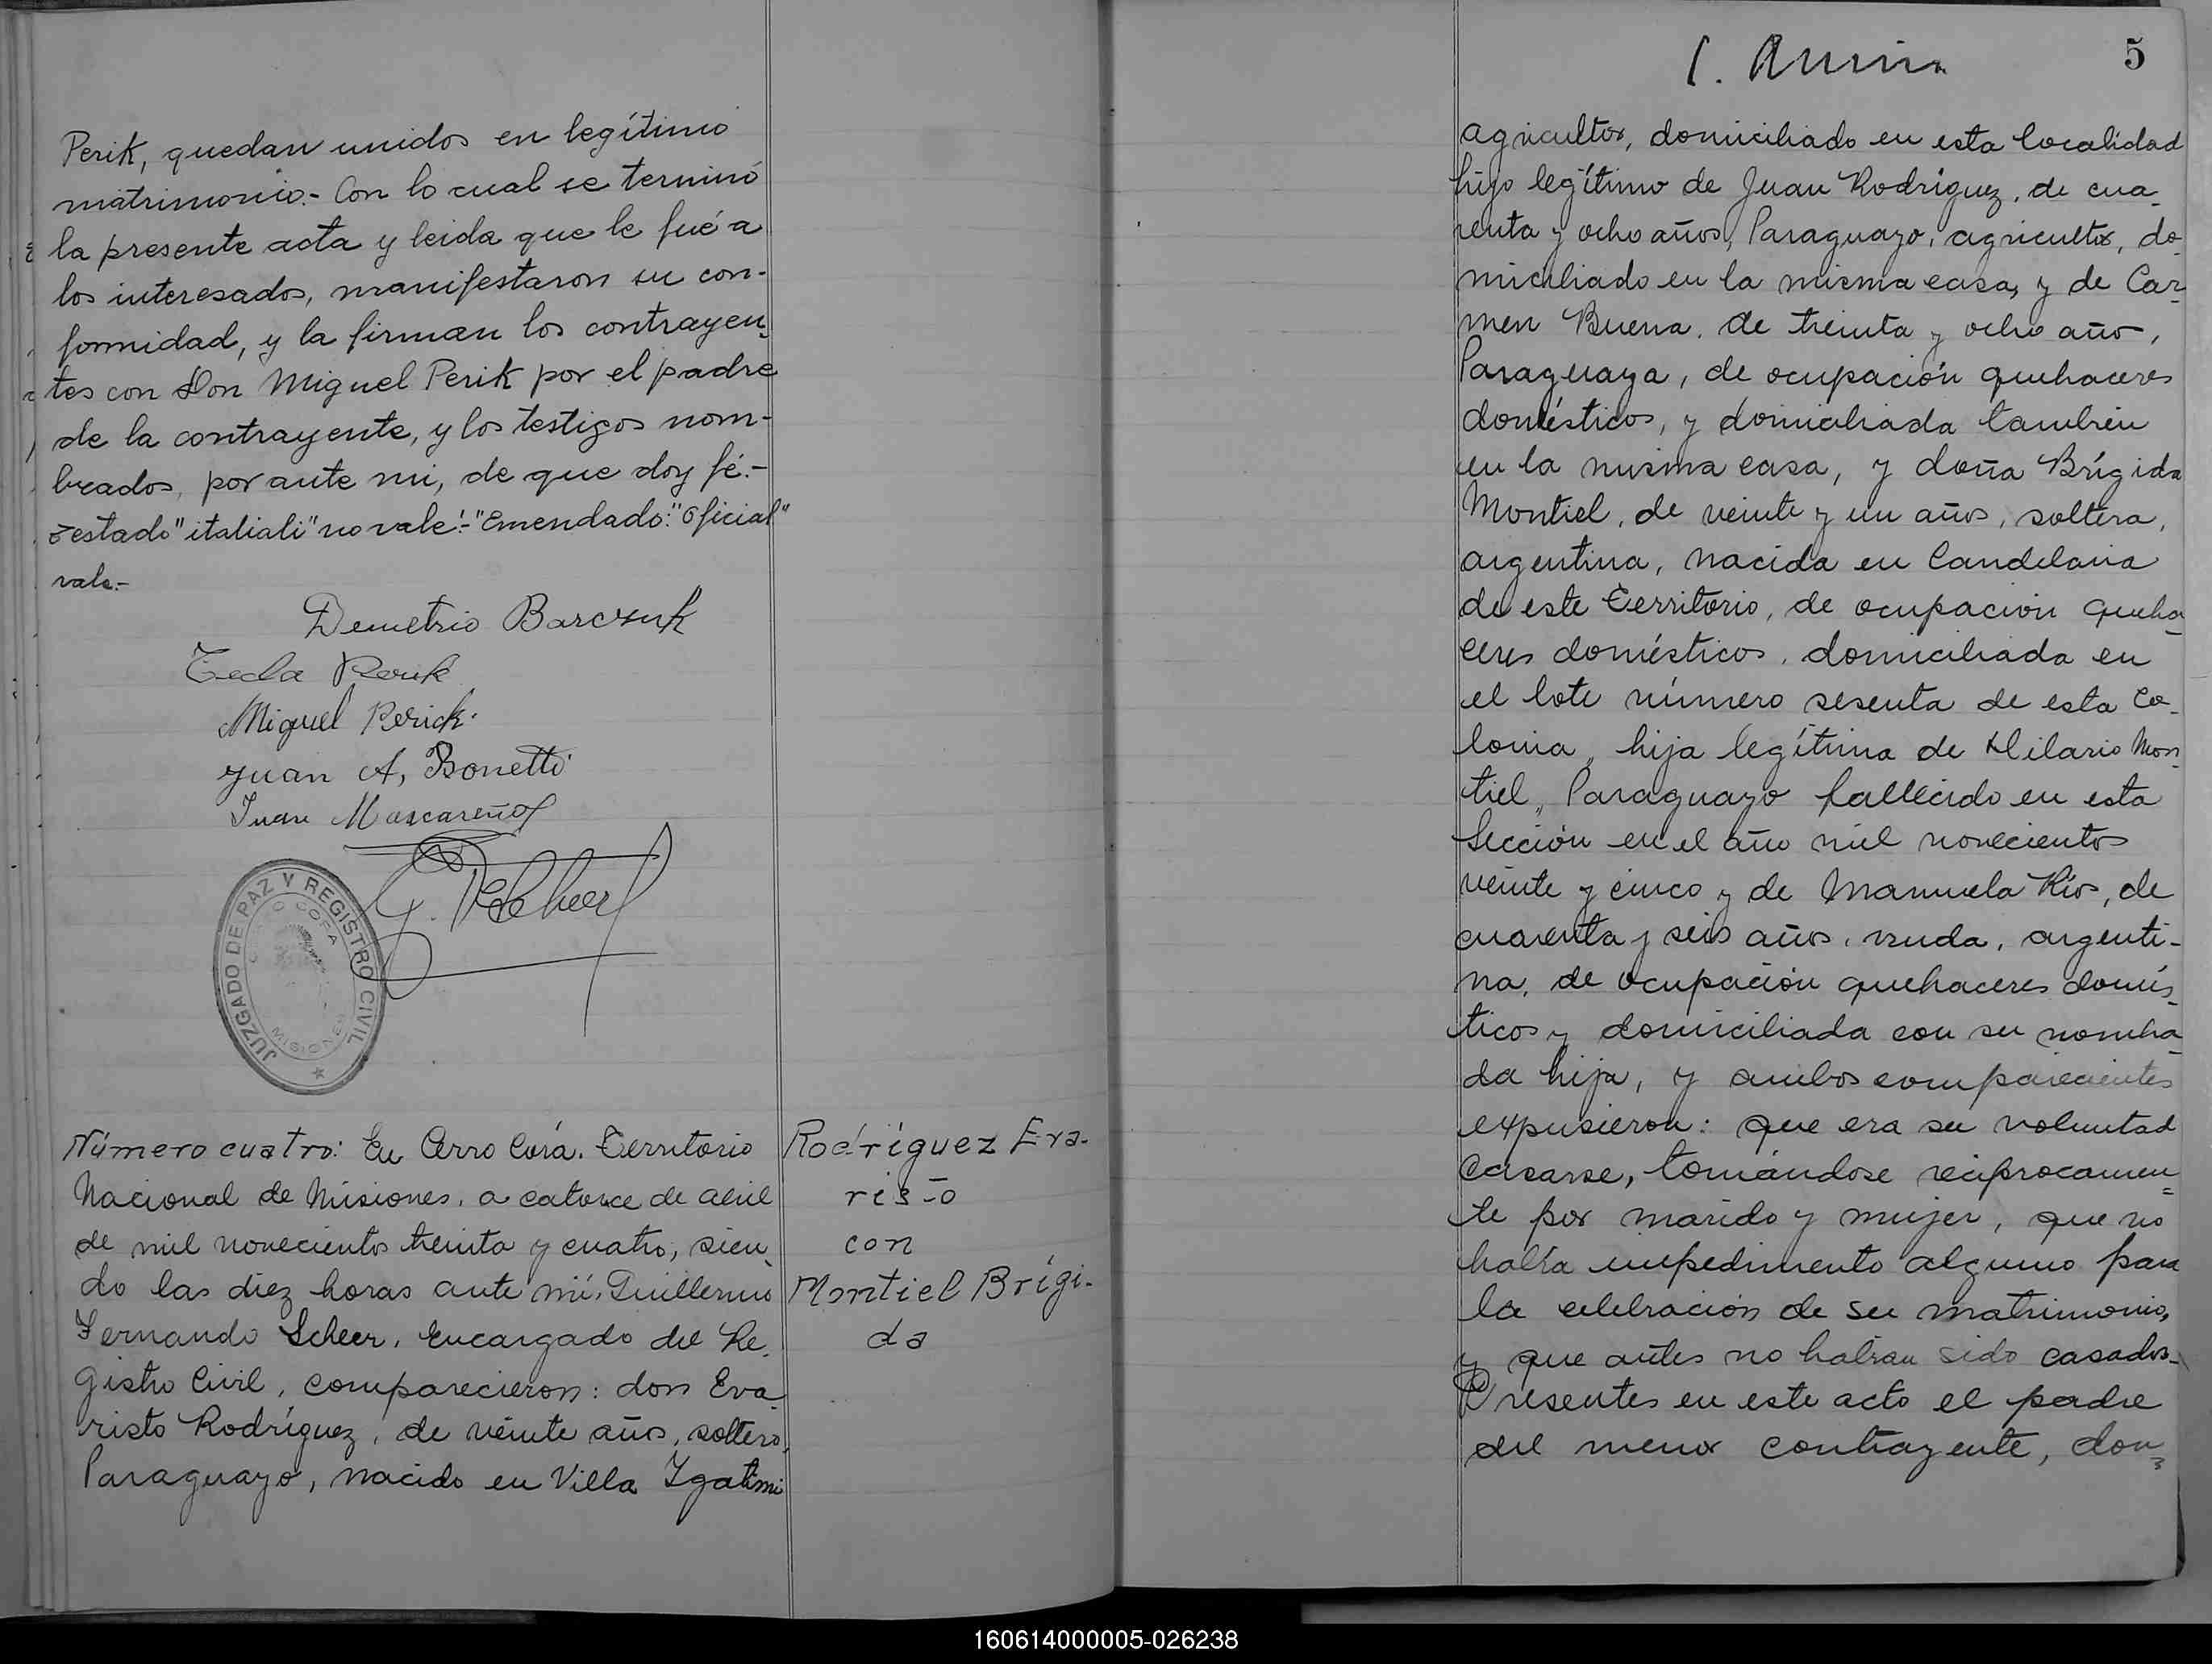 Perik, quedan unidos en legítimo
matrimonio.- Con lo cual se terminó
la presente acta y leida que le fué a
los interesados, manifestaron su con-
formidad, y la firman los contrayen-
tes con Don Miguel Perik por el padre
de la contrayente, y los testigos nom-
brados, por ante mi, de que doy fé.-
Testado "italiali" no vale.- "Emendado: "Oficial"
vale.-
Demetrio Barczuk
Tecla Perik
Miguel Perick.
Juan A, Bonetti
Juan Mascareño
G. F. Scheer
JUZGADO DE PAZ Y REGISTRO CIVIL
CORA
MISIONES
Número cuatro: En Cerro Corá. Territorio
Nacional de Misiones, a catorce de abril
de mil novecientos treinta y cuatro, sien-
do las diez horas ante mí, Guillermo
Fernando Scheer, Encargado del Re-
gistro Civil, comparecieron: don Eva-
risto Rodríguez, de veinte años, soltero,
Paraguayo, nacido en Villa Ygatimi
Rodríguez Eva-
risto
con
Montiel Brígi-
da
5
agricultor, domiciliado en esta localidad
hijo legítimo de Juan Rodríguez, de cua-
renta y ocho años, Paraguayo, agricultor, do-
miciliado en la misma casa, y de Car-
men Buena, de treinta y ocho año,
Paraguaya, de ocupación quehaceres
domésticos, y domiciliada también
en la misma casa, y doña Brígida
Montiel, de veinte y un años, soltera,
argentina, nacida en Candelaria
de este Territorio, de ocupación queha-
ceres domésticos, domiciliada en
el lote número sesenta de esta Co-
lonia, hija legítima de Hilario Mon-
tiel, Paraguayo fallecido en esta
Sección en el año mil novecientos
veinte y cinco y de Manuela Ríos, de
cuarenta y seis años, viuda, argenti-
na, de ocupación quehaceres domés-
ticos y domiciliada con su nombra-
da hija, y ambos comparecientes
expusieron: que era su voluntad
casarse, tomándose recíprocamen-
te por marido y mujer, que no
había impedimento alguno para
la celebración de su matrimonio,
y que antes no habían sido casados.-
Presentes en este acto el padre
del menor contrayente, don
160614000005-026238